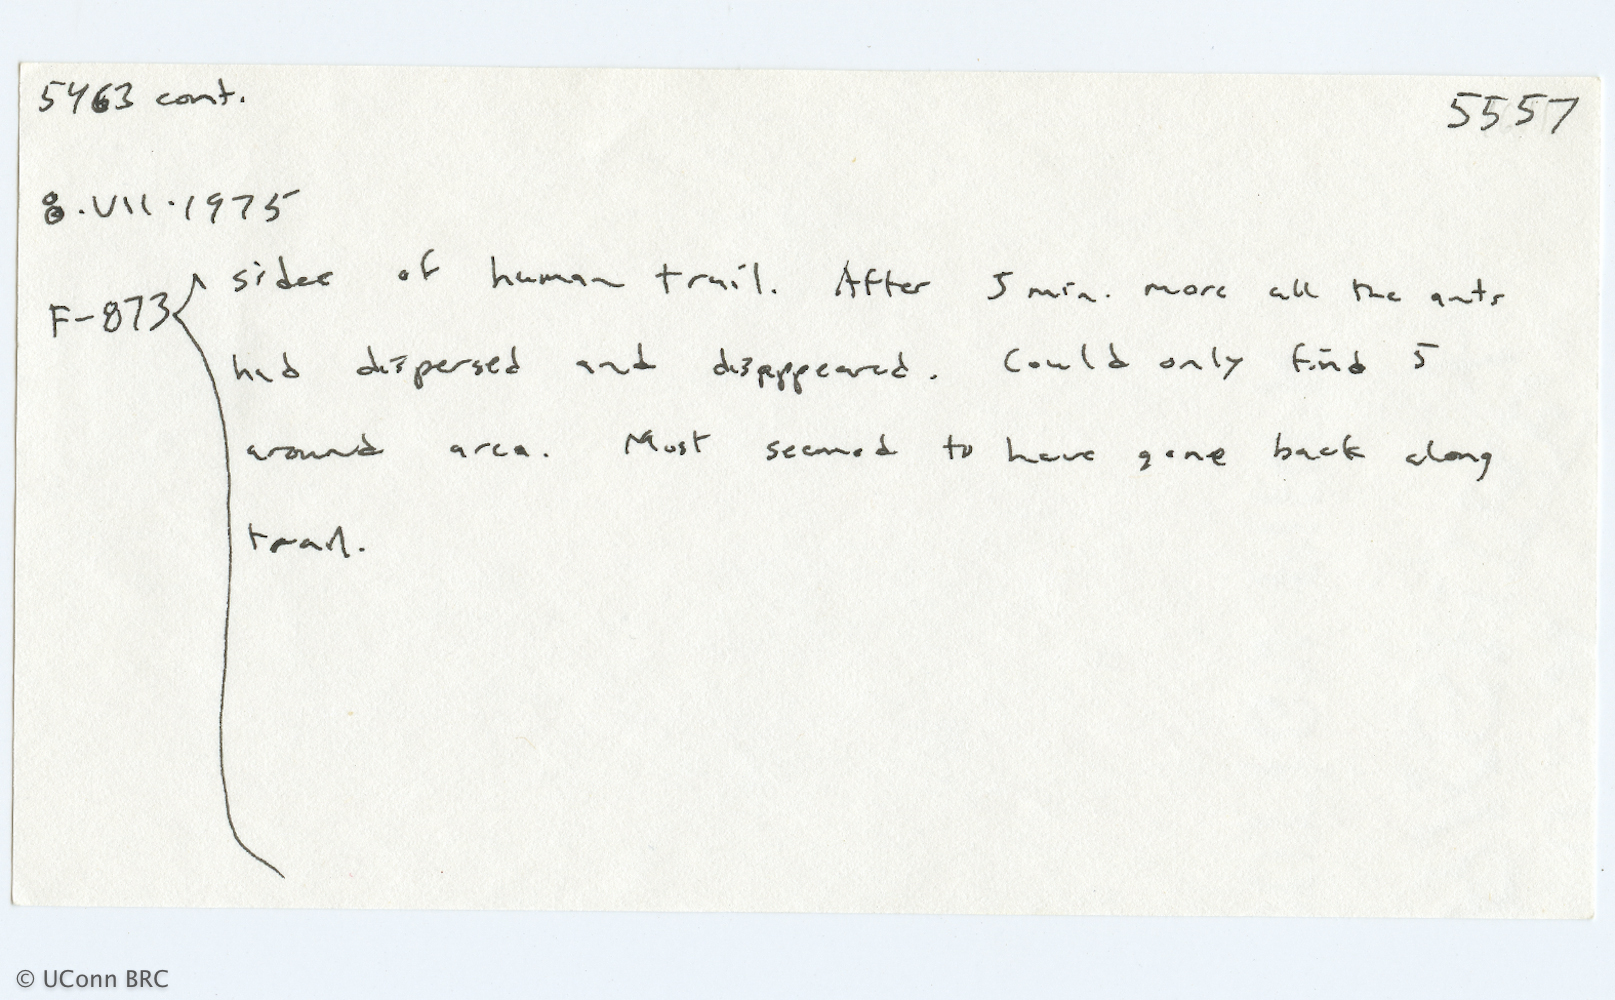 5463 cont.
5557
8.VII.1975
F-873
sides of human trail. After 5 min. more all the ants
had dispersed and disappeared. Could only find 5
around area. Most seemed to have gone back along
trail.
© UConn BRC